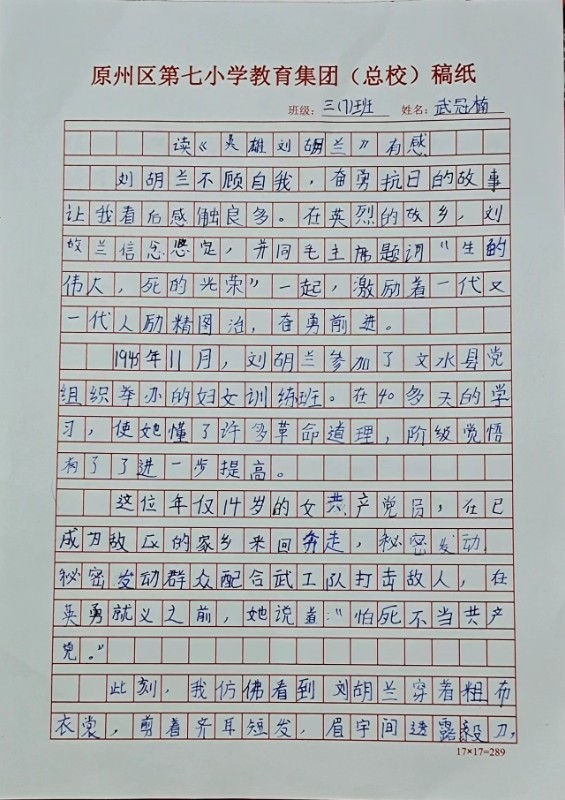 原州区第七小学教育集团（总校）稿纸
班级：三(7)班 姓名：武冠楠
读《英雄刘胡兰》有感
刘胡兰不顾自我，奋勇抗日的故事
让我看后感触良多。在英烈的故乡，刘
故兰信念坚定，并同毛主席题词“生的
伟大，死的光荣”一起，激励着一代又
一代人励精图治，奋勇前进。
1945年11月，刘胡兰参加了文水县党
组织举办的妇女训练班。在40多天的学
习，使她懂了许多革命道理，阶级觉悟
有了了进一步提高。
这位年仅14岁的女共产党员，在已
成为敌区的家乡来回奔走，秘密发动
秘密发动群众配合武工队打击敌人，在
英勇就义之前，她说道：“怕死不当共产
党。”
此刻，我仿佛看到刘胡兰穿着粗布
衣裳，剪着齐耳短发，眉宇间透露毅力，
17×17=289